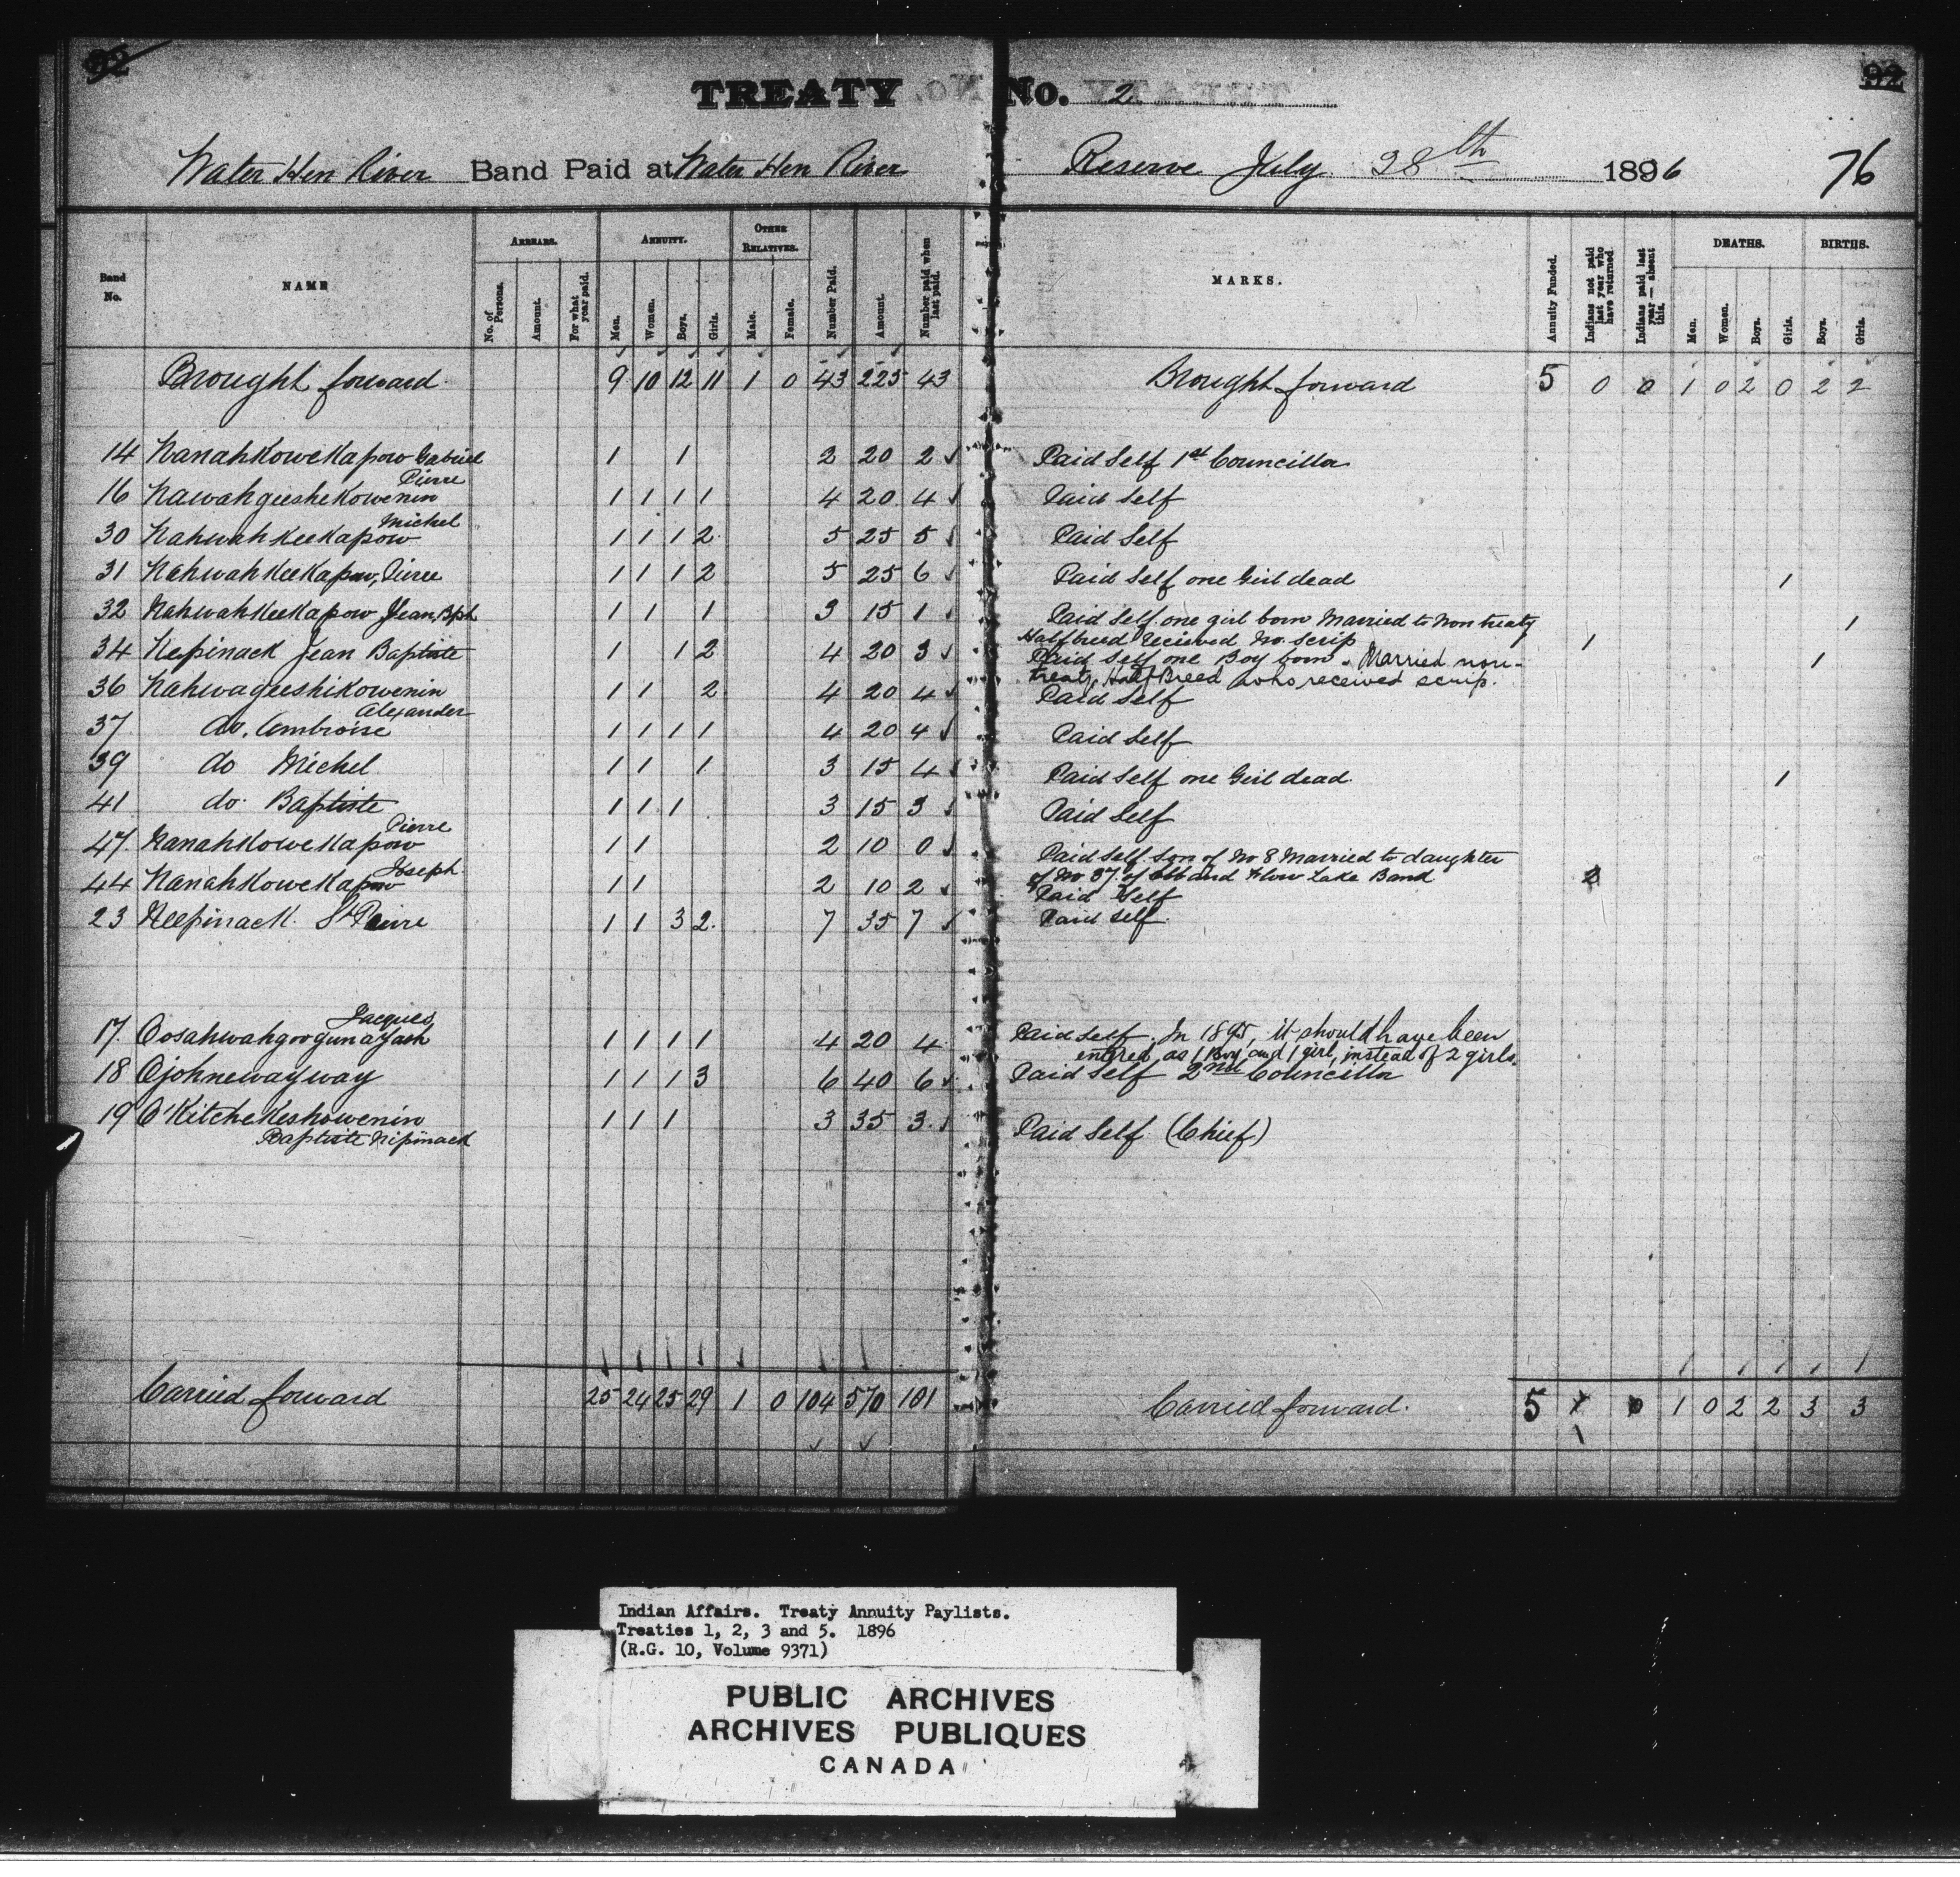 92
92
TREATY No. 2
Water Hen River Band Paid at Water Hen River Reserve July 28th 1896
76
Band No.
NAME
ARREARS.
No. of Persons.
Amount.
For what year paid.
ANNUITY.
Men.
Women.
Boys.
Girls.
OTHER RELATIVES.
Male.
Female.
Number Paid.
Amount.
Number paid when last paid.
MARKS.
Annuity Funded.
Indians not paid last year who have returned.
Indians paid last year — absent this.
DEATHS.
Men.
Women.
Boys.
Girls.
BIRTHS.
Boys.
Girls.
Brought forward 9 10 12 11 1 0 43 225 43 Brought forward 5 0 0 1 0 2 0 2 2
14 Nanahkowekapow Gabriel 1 1 2 20 2 Paid Self 1st Councillor
Pierre
16 Nawahgeeshekowenin 1 1 1 1 4 20 4 Paid Self
Michel
30 Nahwahkeekapow 1 1 1 2 5 25 5 Paid Self
31 Nahwahkeekapow, Pierre 1 1 1 2 5 25 6 Paid Self one Girl dead 1
32 Nahwahkeekapow Jean Bpt 1 1 1 3 15 1 Paid Self one girl born Married to Non treaty 1
Halfbreed Received no scrip 1
34 Nepinack Jean Baptiste 1 1 2 4 20 3 Paid Self one Boy born. Married non- 1
treaty, Half Breed who received scrip.
36 Nahwageeshikowenin 1 1 2 4 20 4 Paid Self
Alexander
37 do. Ambroise 1 1 1 1 4 20 4 Paid Self
39 do Michel 1 1 1 3 15 4 Paid Self one Girl dead. 1
41 do. Baptiste 1 1 1 3 15 3 Paid Self
Pierre
47. Nanahkowekapow 1 1 2 10 0 Paid Self. Son of No 8 Married to daughter
of No 37 of Ebb and Flow Lake Band 2
Joseph.
44 Nanahkowekapow 1 1 2 10 2 Paid Self
23 Neepinack. St Pierre 1 1 3 2. 7 35 7 Paid self.
Jacques
17. Oosahwahgoogunayash 1 1 1 1 4 20 4 Paid Self. In 1895, it should have been
entered as 1 Boy and 1 girl, instead of 2 girls.
18 Ojohnewayway 1 1 1 3 6 40 6 Paid Self 2nd Councillor
19 O'Kitchekeshowenin 1 1 1 3 35 3. Paid Self. (Chief)
Baptiste Nipinack
Carried forward 25 24 25 29 1 0 104 570 101 Carried forward. 5 1 0 1 0 2 2 3 3
1
Indian Affairs. Treaty Annuity Paylists.
Treaties 1, 2, 3 and 5. 1896
(R.G. 10, Volume 9371)
PUBLIC ARCHIVES
ARCHIVES PUBLIQUES
CANADA